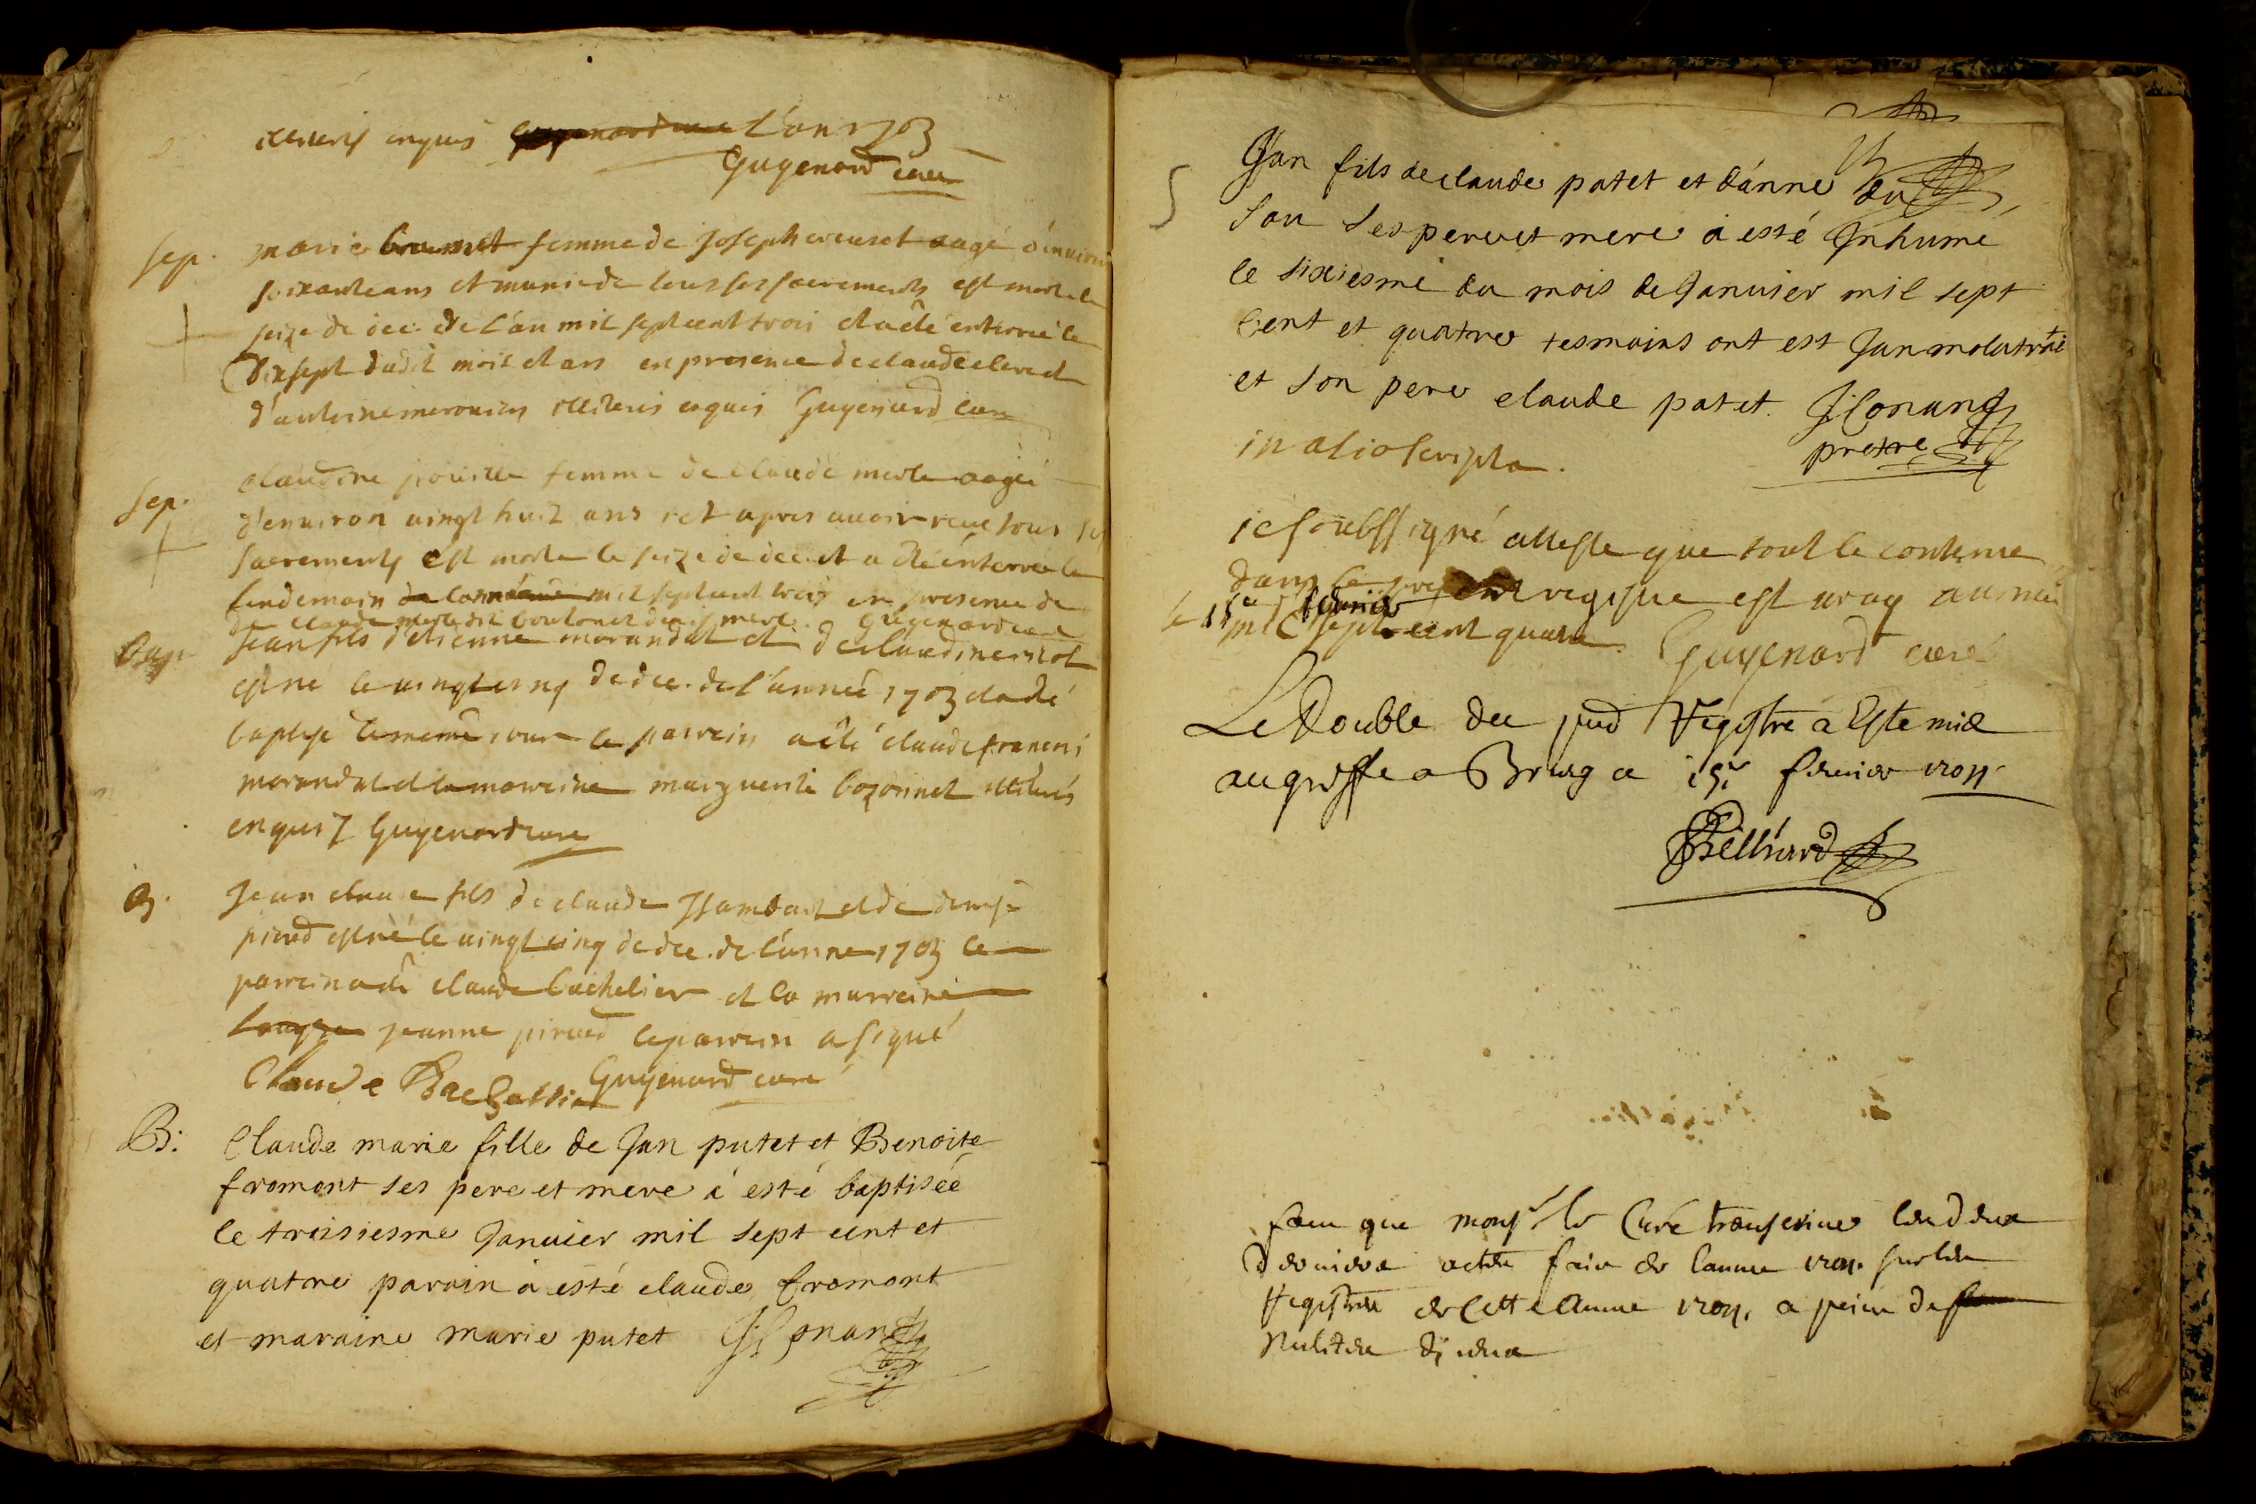 illiteris enquis L'an 1703
Guyenard curé
sep. marie femme de Joseph creuset aagé d'environ
soixante ans et munie de tous ses sacrements est morte le
seize de dec. de L'an mil sept cent trois et a êté enterrée le
dixsept dudit mois et ans en presence de claude clere et
d'antoine illiteris enquis Guyenard curé
sep. claudine femme de claude merle aagée
d'environ vingt huit ans et apres avoir receu tous ses
sacrements est morte le seize de dec. et a êté enterrée le
lendemain mil sept cent trois en presence de
de claude merle dit Guyenard curé
Bap. Jean fils d'etienne morandat et de claudine
est né le vingt cinq de dec. de l'année 1703 et a été
baptisé le meme jour le parrein a êté claude francois
morandat et la marreine marguerite bozonnet illiteris
enquis Guyenard curé
B. Jean claude fils de claude et de denise
piroud est né le vingt cinq de dec. de l'anne 1703 le
parrein a êté claude bachelier et la marreine
jeanne piroud le parrein a signé
Claude Guyenard curé
B: Claude marie fille de Jan putet et Benoite
fromont ses pere et mere á esté baptisée
le troisiesme Janvier mil sept cent et
quatre parain a esté claude fromont
et maraine marie putet J: Conand
Jan fils de claude patet et d'anne du
sou ses pere et mere a esté Inhumé
le sixiesme du mois de Janvier mil sept
cent et quatre tesmoins ont est Jan
et son pere claude patet. J: Conand
pretre
in alio scripta.
je soubssigné atteste que tout le contenu
dans le present registre est vray
le 15e fevrier mil sept cent quatre. Guyenard curé
Le Double du pnt Registre a Esté mis
au greffe a Bourg ce 15e fevrier 1704
Belliard
faut que monsr le Curé transcrive les deux
derniers actes faits de lannee 1704 sur les
Registres de Cette annee 1704, a peine de
Nulités diceux